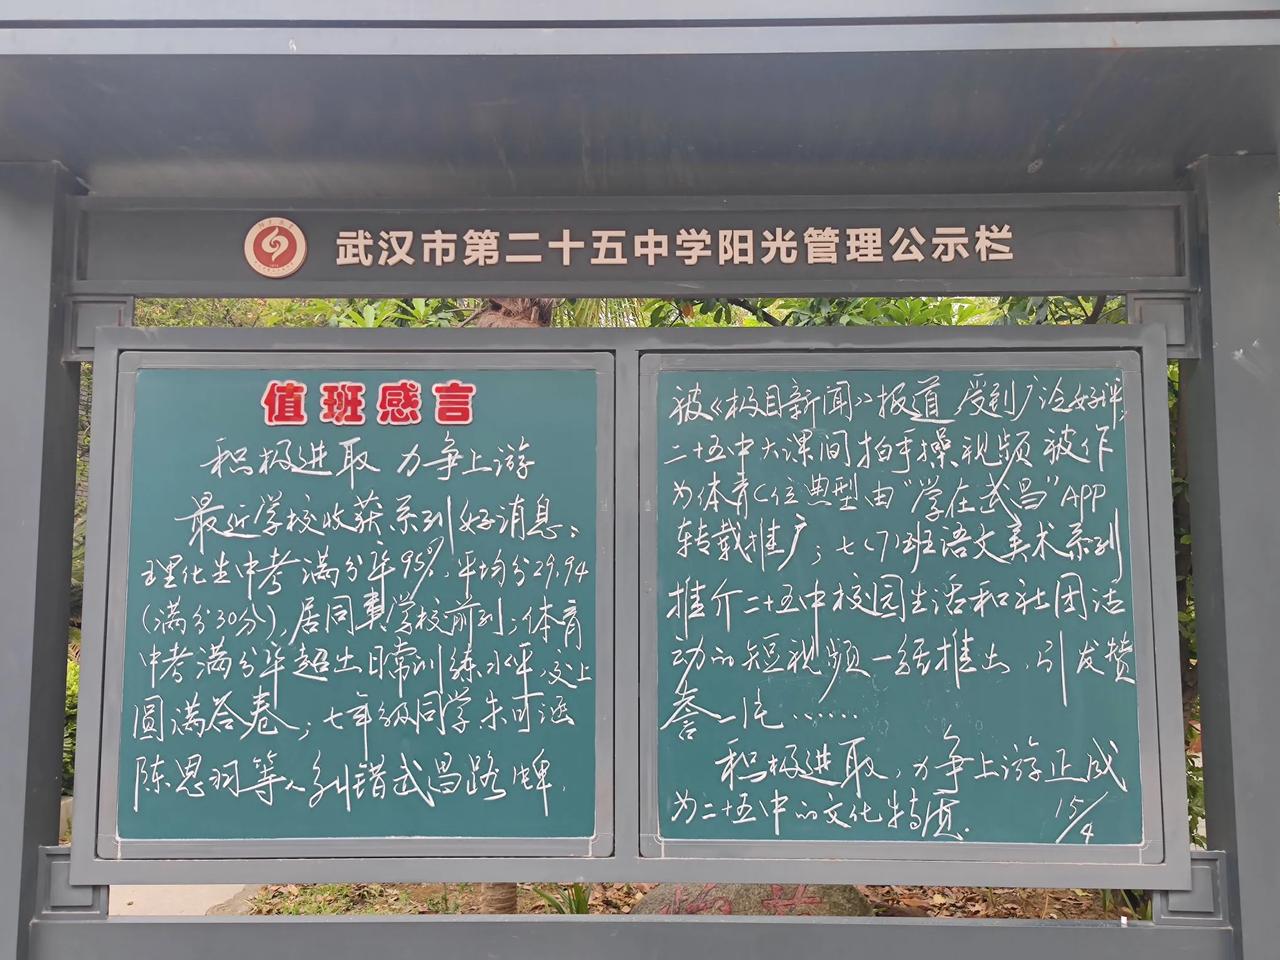 武汉市第二十五中学阳光管理公示栏
值班感言
积极进取 力争上游
最近学校收获系列好消息：
理化生中考满分率95%，平均分29.94
（满分30分），居同类学校前列；体育
中考满分率超出日常训练水平，交上
圆满答卷；七年级同学朱可涵
陈恩羽等人纠错武昌路牌，
被《极目新闻》报道 受到广泛好评；
二十五中大课间拍手操视频被作
为体育C位典型由“学在武昌”APP
转载推广；七（7）班语文美术系列
推介二十五中校园生活和社团活
动的短视频一经推出，引发赞
誉一片……
积极进取，力争上游正成
为二十五中的文化特质.
15/4